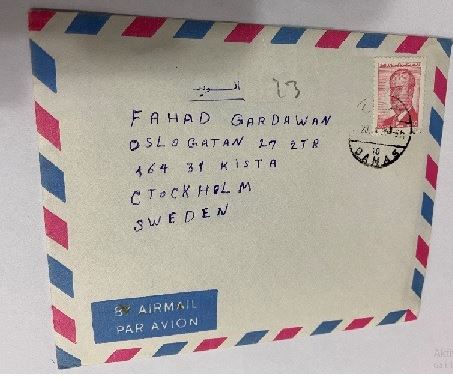 23
FAHAD GARDAWAN
OSLOGATAN 27 2TR
164 31 KISTA
CTOCKHOLM
SWEDEN
BY AIRMAIL
PAR AVION
10
DAMAS